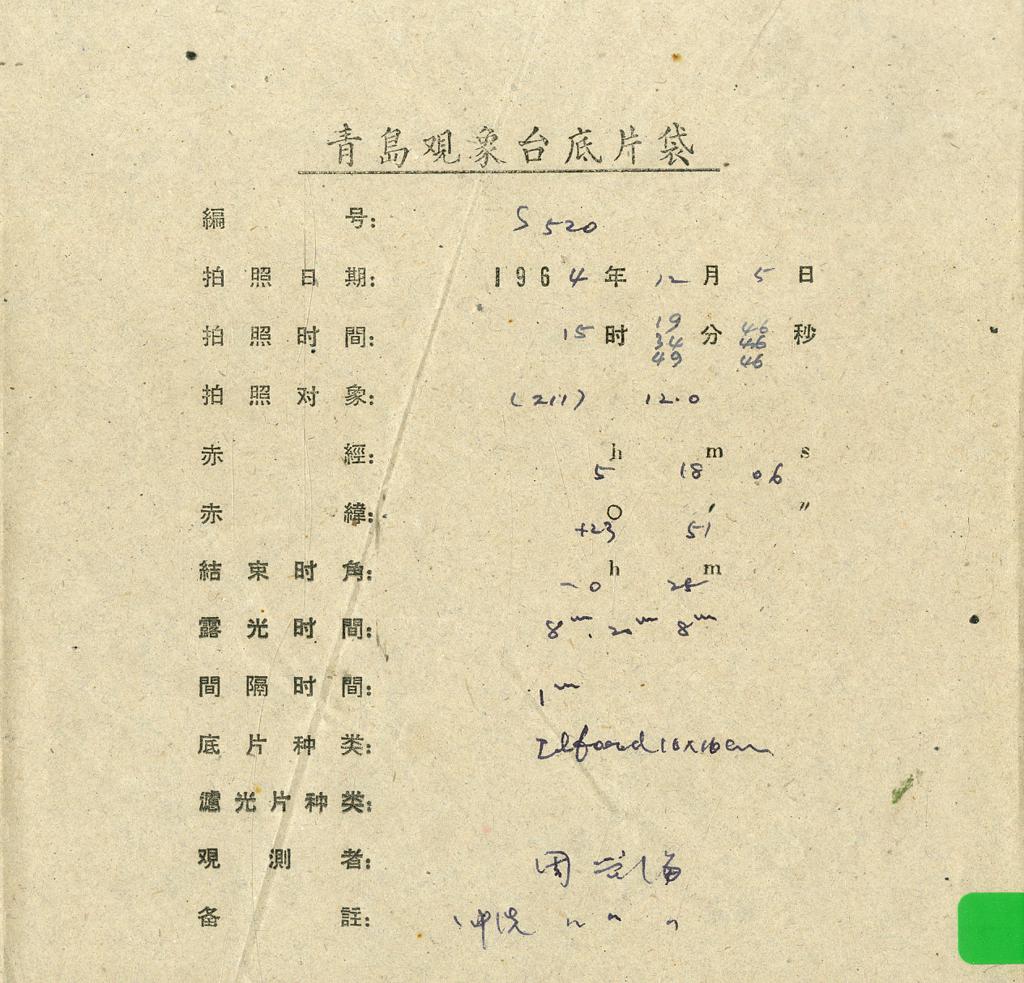 青島观象台底片袋
編号: S 520
拍照日期: 1964年 12月 5日
拍照时間: 15时 19分 46秒
34 46
49 46
拍照对象: (211) 12.0
赤經: 5h 18m 06s
赤緯: +23° 51′ ″
結束时角: -0h 25m
露光时間: 8m. 20m 8m
間隔时間: 1m
底片种类: Ilford 16×16cm
濾光片种类:
观測者: 周
备註: 冲洗 〃 〃 〃